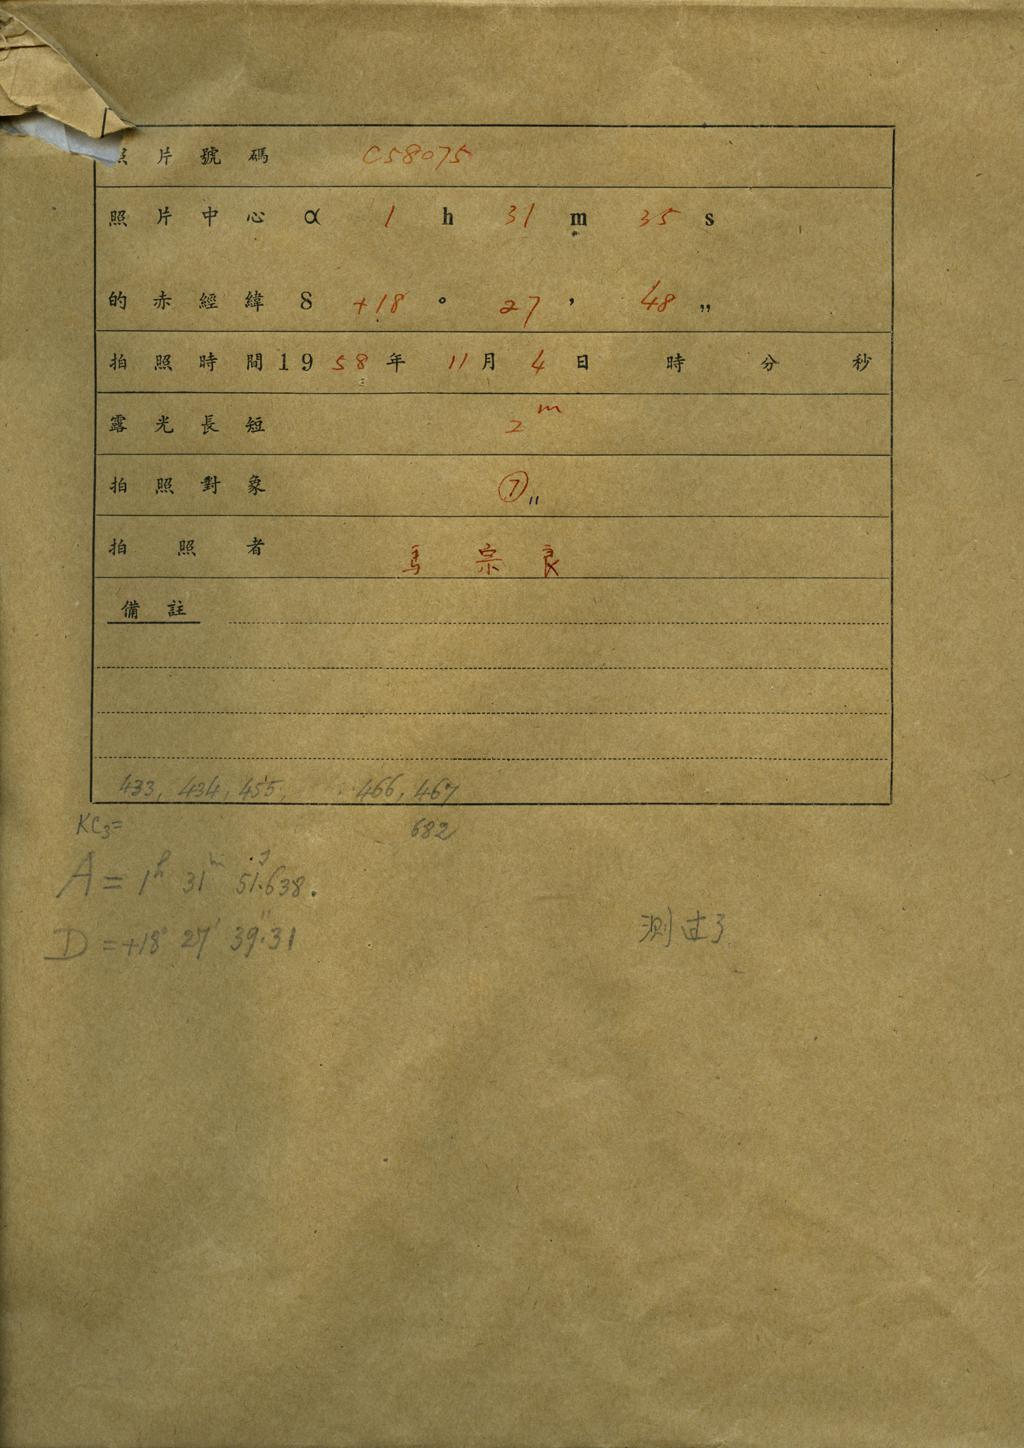 照片號碼 C58075
照片中心 α 1 h 31 m 35 s
的赤經緯 δ +18 ° 27 ′ 48 ″
拍照時間 1958年 11月 4日 時 分 秒
露光長短 2m
拍照對象 ⑦"
拍照者 馬宗良
備註
433, 434, 455, 466, 467
KC3= 682
A = 1h 31m 51s.638.
D = +18° 27′ 39″.31
测过了